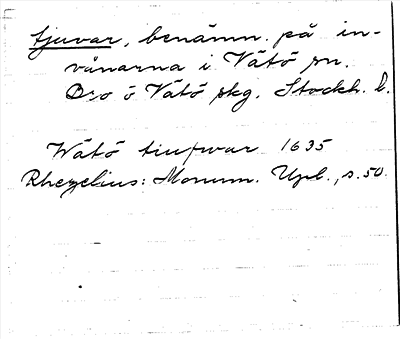 tjuvar, benämn. på in-
vånarna i Vätö sn.
Ö Vätö skg. Stockh. l.
Wätö tiufwar 1635
Rhezelius: Monum. Upl., s. 50.